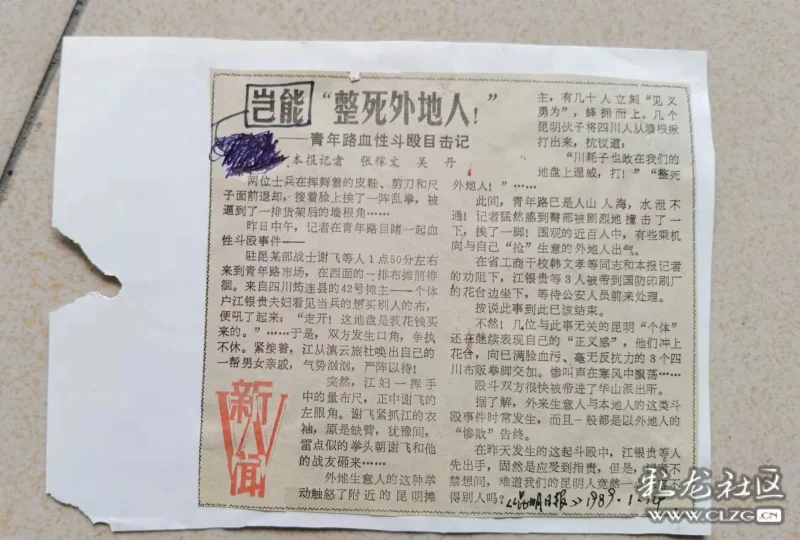 岂能“整死外地人!”
——青年路血性斗殴目击记
本报记者 张稼文 吴丹
两位士兵在挥舞着的皮鞋、剪刀和尺
子面前退却,接着脸上挨了一阵乱拳,被
逼到了一排货架后的墙根角……
昨日中午,记者在青年路目睹一起血
性斗殴事件——
驻昆某部战士谢飞等人1点50分左右
来到青年路市场,在四面的一排布摊前徘
徊。来自四川筠连县的42号摊主——个体
户江银贵夫妇看见当兵的想买别人的布,
便吼了起来:“走开!这地盘是我花钱买
来的。”……于是,双方发生口角,争执
不休。紧接着,江从滇云旅社唤出自己的
一帮男女亲戚,气势汹汹,严阵以待!
突然,江妇一挥手
中的量布尺,正中谢飞的
左眼角。谢飞紧抓江的衣
袖,原是缺臂,犹豫间,
雷点似的拳头朝谢飞和他
的战友砸来……
外地生意人的这种举
动触怒了附近的昆明摊
新闻
主,有几十人立刻“见义
勇为”,蜂拥而上。几个
昆明伙子将四川人从墙根揪
打出来,抗议道:
“川耗子也敢在我们的
地盘上逞威,打!”“整死
外地人!”……
此间,青年路已是人山人海,水泄不
通!记者猛然感到臀部被剧烈地撞击了一
下,挨了一脚!围观的近百人中,有些乘机
向与自己“抢”生意的外地人出气。
在省工商干校韩文孝等同志和本报记者
的劝阻下,江银贵等3人被带到国防印刷厂
的花台边坐下,等待公安人员前来处理。
按说此事到此已该结束。
不然!几位与此事无关的昆明“个体”
还在继续表现自己的“正义感”,他们冲上
花台,向已满脸血污、毫无反抗力的3个四
川布贩拳脚交加。惨叫声在寒风中飘荡……
殴斗双方很快被带进了华山派出所。
据了解,外来生意人与本地人的这类斗
殴事件时常发生,而且一般都是以外地人的
“惨败”告终。
在昨天发生的这起斗殴中,江银贵等人
先出手,固然是应受到指责,但是,
禁想问,难道我们的昆明人竟然一
得别人吗?
《昆明日报》1989.1.
彩龙社区
WWW.CLZG.CN